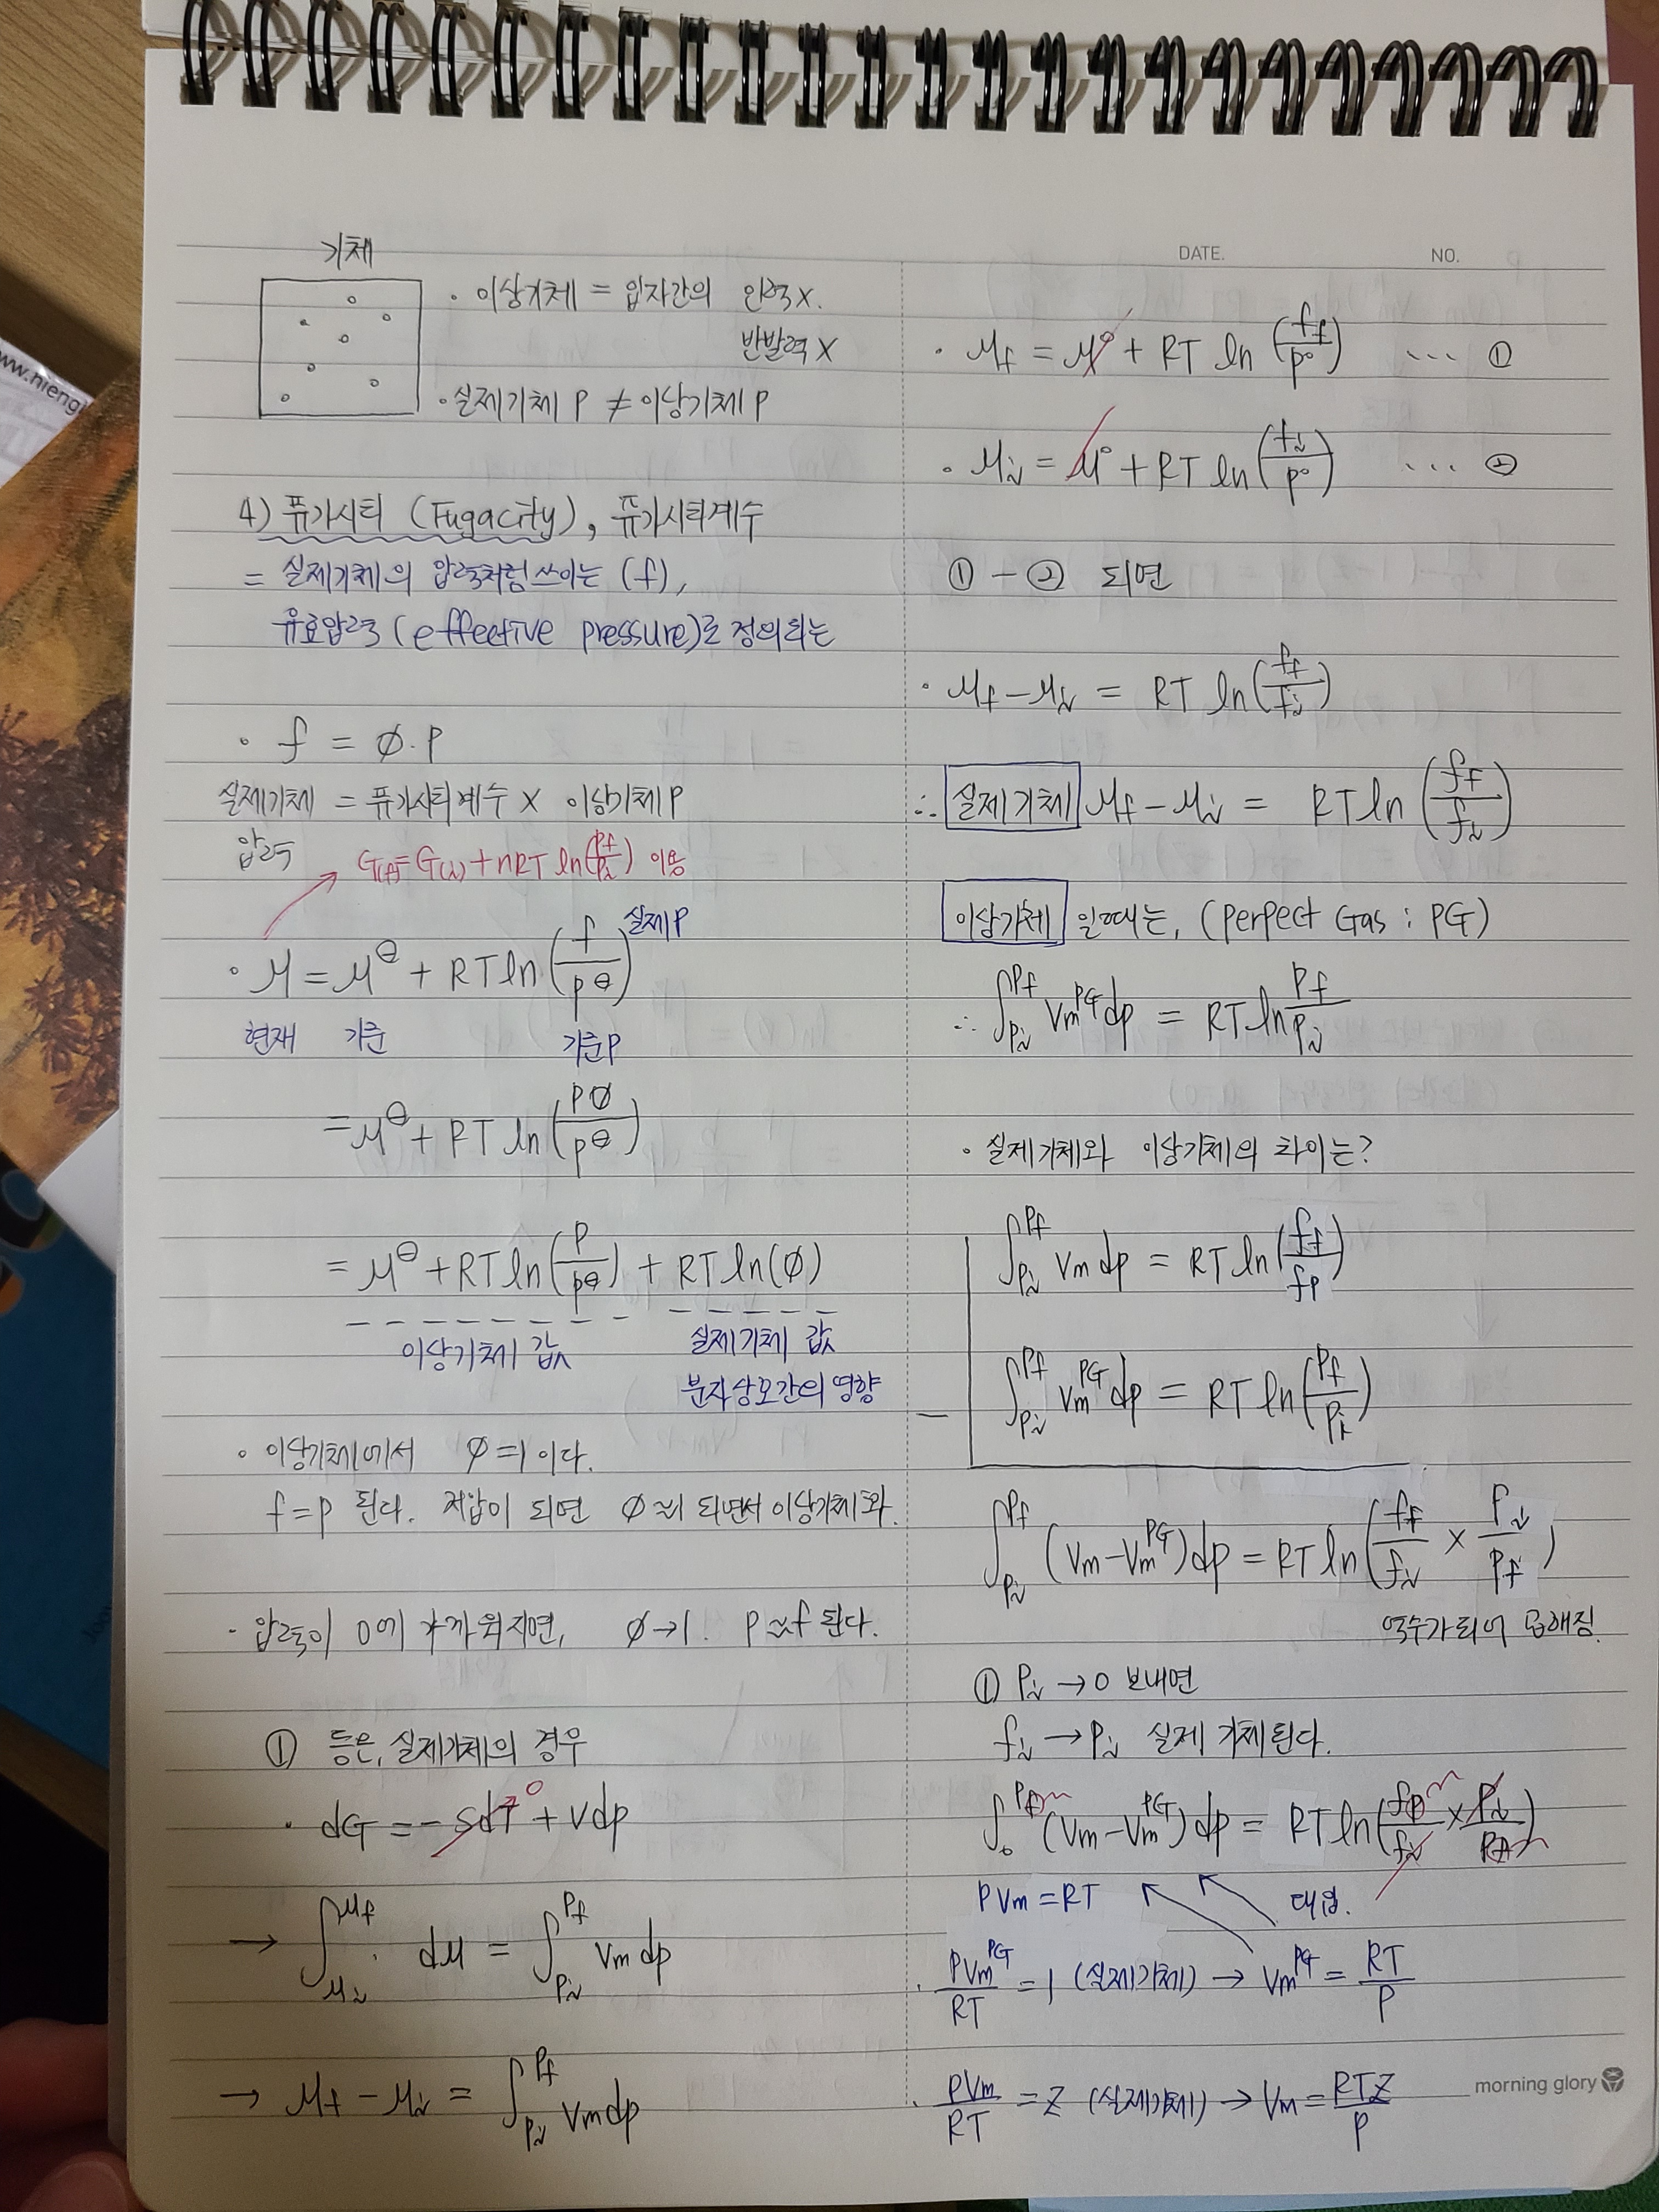 DATE.
NO.
기체
· 이상기체 = 입자간의 인력 X.
반발력 X
· 실제기체 P ≠ 이상기체 P
4) 퓨가시티 (Fugacity), 퓨가시티계수
= 실제기체의 압력처럼 쓰이는 (f),
유효압력 (effective pressure)로 정의되는
· f = ∅·P
실제기체 = 퓨가시티계수 × 이상기체 P
압력
G(f) = G(i) + nRT ln(Pf/Pi) 이용
· μ = μ^θ + RT ln(f/P^θ) 실제 P
현재 기준 기준 P
= μ^θ + RT ln(P∅/P^θ)
= μ^θ + RT ln(P/P^θ) + RT ln(∅)
이상기체 값 실제기체 값
분자상호간의 영향
· 이상기체에서 ∅ = 1 이다.
f = P 된다. 저압이 되면 ∅ ≈ 1 되면서 이상기체화.
· 압력이 0에 가까워지면, ∅ → 1. P ≈ f 된다.
① 등온, 실제기체의 경우
· dG = -SdT⁰ + Vdp
→ ∫_μi^μf dμ = ∫_Pi^Pf Vm dp
→ μf - μi = ∫_Pi^Pf Vm dp
· μf = μ° + RT ln(ff/P°) ... ①
· μi = μ° + RT ln(fi/P°) ... ②
① - ② 되면
· μf - μi = RT ln(ff/fi)
∴ 실제기체 μf - μi = RT ln(ff/fi)
이상기체 일때는, (Perpect Gas : PG)
∴ ∫_Pi^Pf Vm^PG dp = RT ln Pf/Pi
· 실제기체와 이상기체의 차이는?
∫_Pi^Pf Vm dp = RT ln(ff/fp)
— ∫_Pi^Pf Vm^PG dp = RT ln(Pf/Pi)
∫_Pi^Pf (Vm - Vm^PG) dp = RT ln(ff/fi × Pi/Pf)
역수가 되어 곱해짐.
① Pi → 0 보내면
fi → Pi 실제 기체된다.
∫_0^Pf (Vm - Vm^PG) dp = RT ln(fp/fi × Pi/Pf)
PVm = RT 대입.
· PVm^PG/RT = 1 (실제기체) → Vm^PG = RT/P
· PVm/RT = Z (실제기체) → Vm = RTZ/P
morning glory